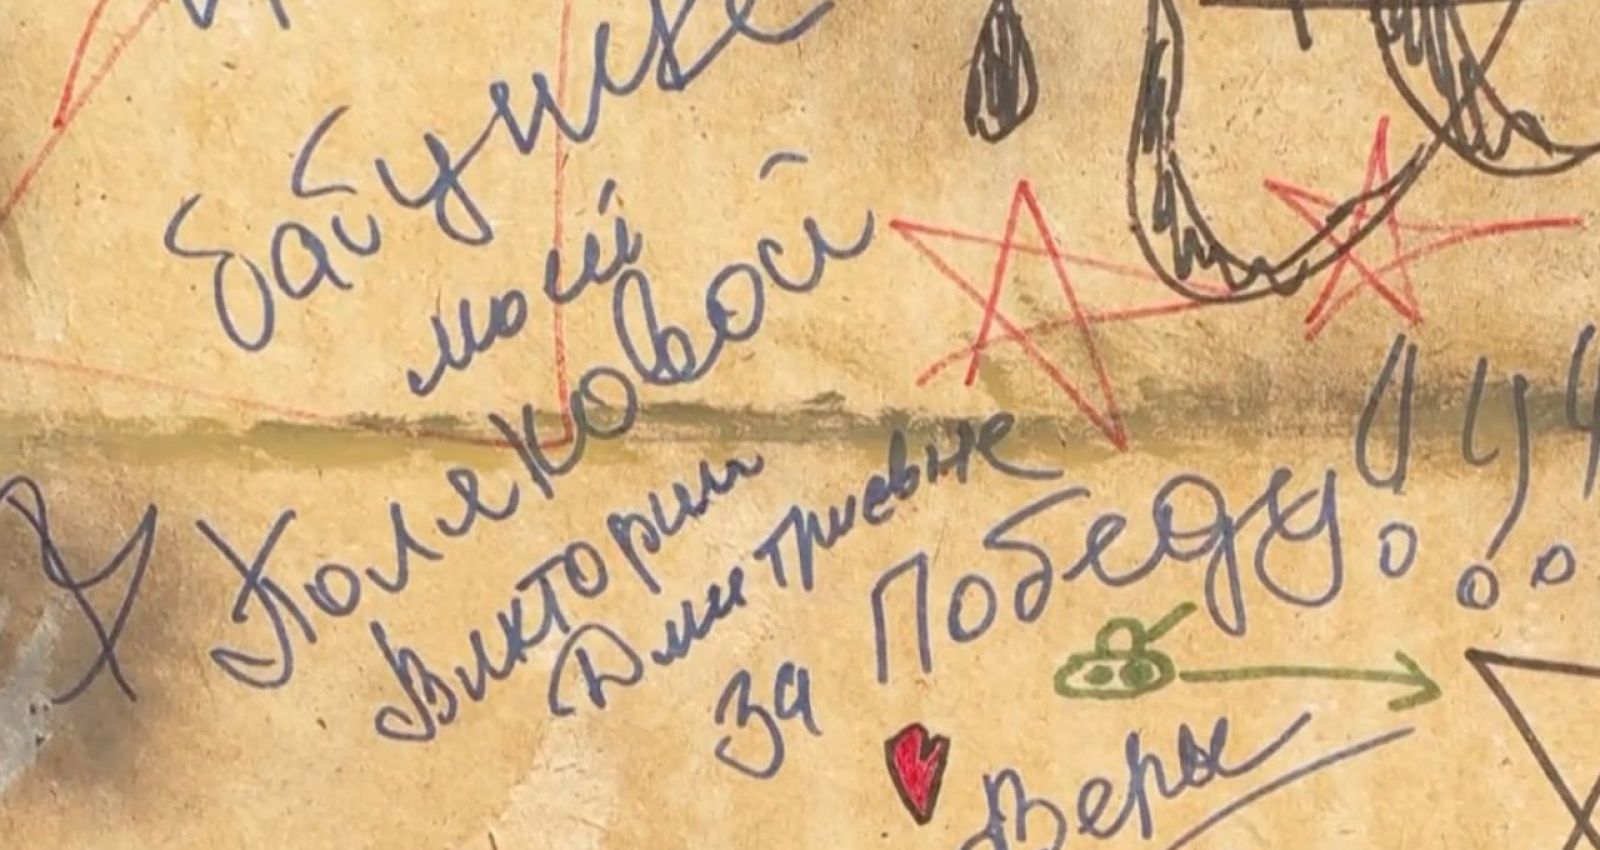 бабушке
моей
Поляковой
Виктории
Дмитриевне
за Победу!!!
Веры